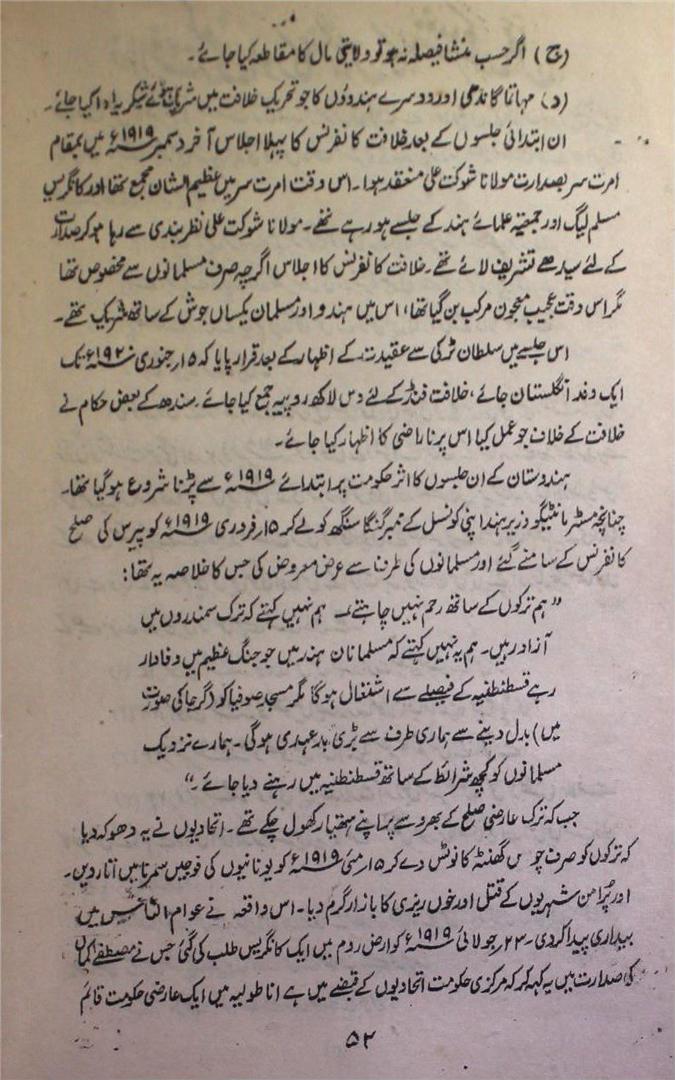 (ج) اگر حسب منشا فیصلہ نہ ہو تو ولایتی مال کا مقاطعہ کیا جائے۔
(د) مہاتما گاندھی اور دوسرے ہندوؤں کا جو تحریک خلافت میں شریک ہوئے شکریہ ادا کیا جائے۔
ان ابتدائی جلسوں کے بعد خلافت کانفرنس کا پہلا اجلاس آخر دسمبر ۱۹۱۹ء میں بمقام
امرت سر بصدارت مولانا شوکت علی منعقد ہوا۔ اس وقت امرت سر میں عظیم الشان مجمع تھا اور کانگریس
مسلم لیگ اور جمعیۃ علمائے ہند کے جلسے ہو رہے تھے۔ مولانا شوکت علی نظر بندی سے رہا ہو کر صدارت
کے لئے سیدھے تشریف لائے تھے۔ خلافت کانفرنس کا اجلاس اگرچہ صرف مسلمانوں سے مخصوص تھا
مگر اس وقت عجیب معجون مرکب بن گیا تھا، اس میں ہندو اور مسلمان یکساں جوش کے ساتھ شریک تھے۔
اس جلسے میں سلطان ترکی سے عقیدت کے اظہار کے بعد قرار پایا کہ ۱۵ر جنوری ۱۹۲۰ء تک
ایک وفد انگلستان جائے، خلافت فنڈ کے لئے دس لاکھ روپیہ جمع کیا جائے۔ سندھ کے بعض حکام نے
خلافت کے خلاف جو عمل کیا اس پر ناراضی کا اظہار کیا جائے۔
ہندوستان کے ان جلسوں کا اثر حکومت پر ابتدائے ۱۹۱۹ء سے پڑنا شروع ہو گیا تھا۔
چنانچہ مسٹر مانٹیگو وزیر ہند اپنی کونسل کے ممبر گنگا سنگھ کو لے کر ۱۵ر فروری ۱۹۱۹ء کو پیرس کی صلح
کانفرنس کے سامنے گئے اور مسلمانوں کی طرف سے عرض معروض کی جس کا خلاصہ یہ تھا:
"ہم ترکوں کے ساتھ رحم نہیں چاہتے۔ ہم نہیں کہتے کہ ترک سمندروں میں
آزاد رہیں۔ ہم یہ نہیں کہتے کہ مسلمانان ہند میں جو جنگ عظیم میں وفادار
رہے قسطنطنیہ کے فیصلے سے اشتعال ہوگا مگر مسجد صوفیا کو (گرجا کی صورت
میں) بدل دینے سے ہماری طرف سے بڑی بدعہدی ہوگی۔ ہمارے نزدیک
مسلمانوں کو کچھ شرائط کے ساتھ قسطنطنیہ میں رہنے دیا جائے۔"
جب کہ ترک عارضی صلح کے بھروسے پر اپنے ہتھیار کھول چکے تھے۔ اتحادیوں نے یہ دھوکہ دیا
کہ ترکوں کو صرف گھنٹہ کا نوٹس دے کر ۱۵ر مئی ۱۹۱۹ء کو یونانیوں کی فوجیں سمرنا میں اتار دیں۔
اور پرامن شہریوں کے قتل اور خوں ریزی کا بازار گرم دیا۔ اس واقعہ نے عوام الناس میں
بیداری پیدا کر دی۔ ۲۳ر جولائی ۱۹۱۹ء کو ارض روم میں ایک کانگریس طلب کی گئی جس نے مصطفےٰ کمال
کی صدارت میں یہ کہہ کر کہ مرکزی حکومت اتحادیوں کے قبضے میں ہے اناطولیہ میں ایک عارضی حکومت قائم
۵۲